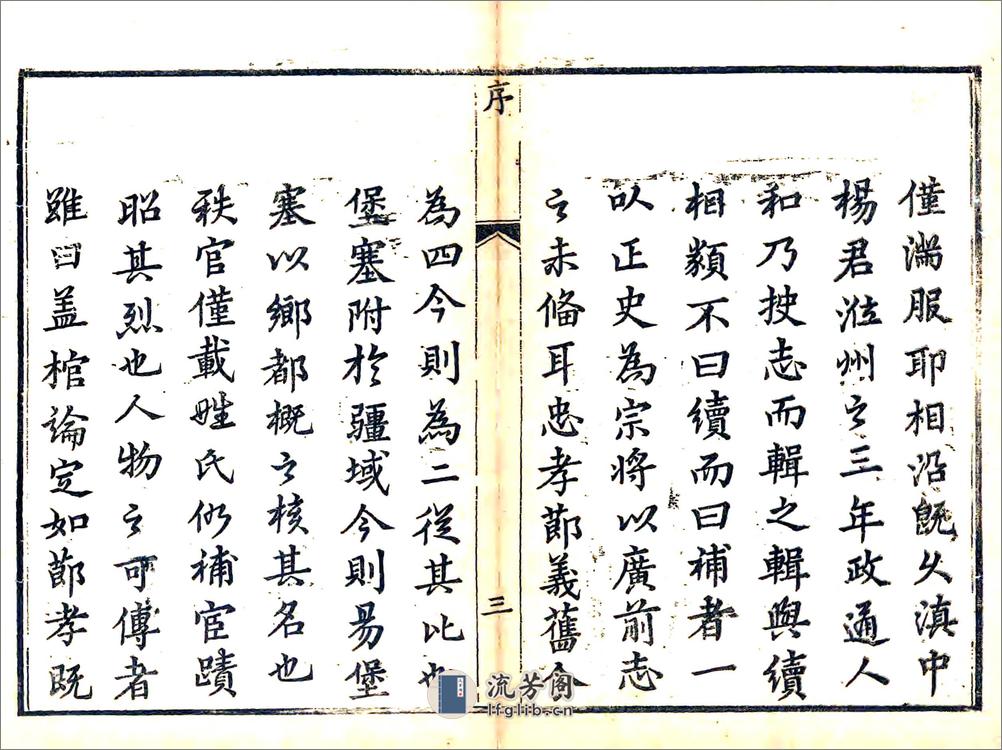 僅滿服耶相沿既久滇中
楊君涖州之三年政通人
和乃披志而輯之輯與續
相類不曰續而曰補者一
以正史為宗將以廣前志
之未俻耳忠孝莭義舊分
序
三
為四今則為二從其比也
堡塞附於疆域今則易堡
塞以鄉都概之核其名也
秩官僅載姓氏仍補宦蹟
昭其烈也人物之可傳者
雖曰盖棺論定如莭孝既
流芳阁
lfglib.cn